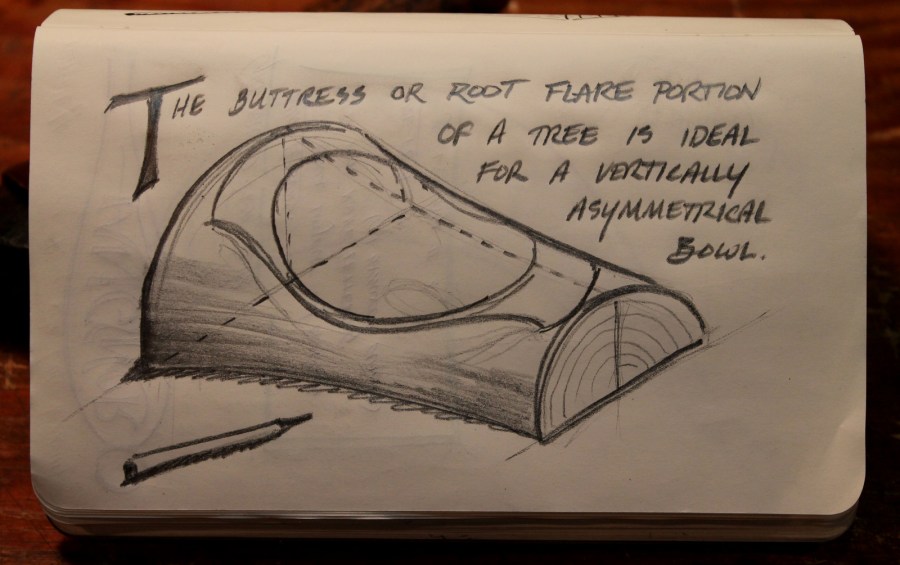 THE BUTTRESS OR ROOT FLARE PORTION
OF A TREE IS IDEAL
FOR A VERTICALLY
ASYMMETRICAL
BOWL.